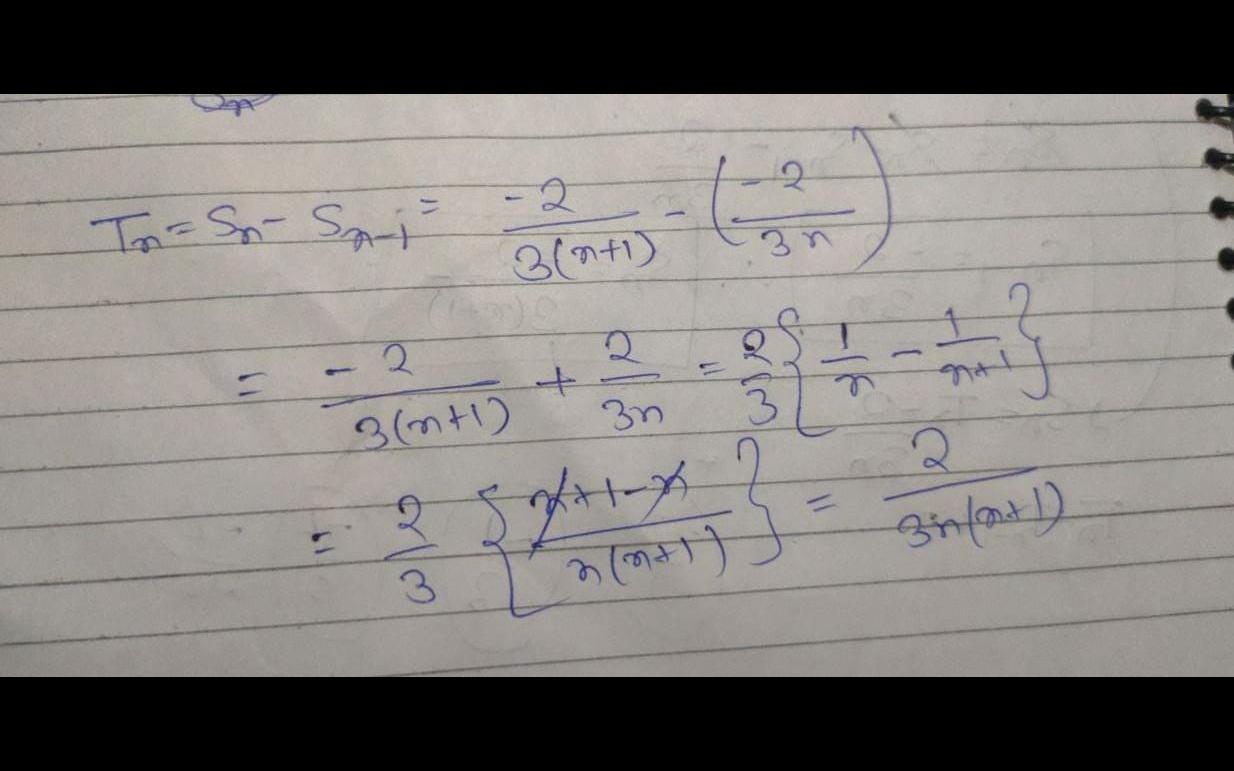 Tn = Sn - Sn-1 = -2/3(n+1) - (-2/3n)
= -2/3(n+1) + 2/3n = 2/3 {1/n - 1/n+1}
= 2/3 {n+1-n/n(n+1)} = 2/3n(n+1)